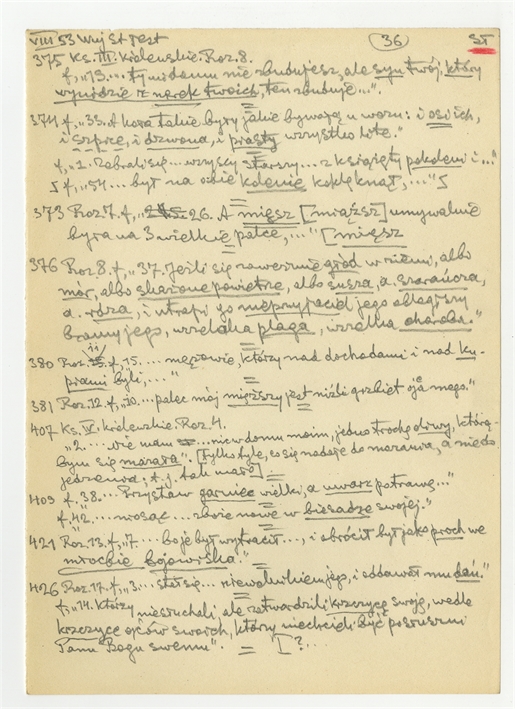 VIII 53 Wuj St Test (36) ST
375 Ks. III. Królewskie. Roz. 8.
f. „19... ty mi domu nie zbudujesz, ale syn twój, który
wynidzie z nerek twoich, ten zbuduje...".
374 f. „33. A koła takie były jakie bywają u wozu: i osi ich,
i szpice, i dzwona, i piasty wszystko lite."
f. „1. Zebrali się... wszyscy starszy... z książęty pokoleni i..."
f. „54... był na obie kolenie poklęknął, ..."
373 Roz 7. f. 26. A miąsz [miąższ] umywalnie
była na 3 wielkie palce, ..." [miąsz
376 Roz 8. f. „37. Jeśli się nawet głód w ziemi, albo
mór, albo skażone powietrze, albo susza, a szarańcza,
a rdza, i utrapi go nieprzyjaciel jego oblągszy
bramy jego, wszelka plaga, wszelka choroba."
380 Roz. 11 f. 15.... mężowie, którzy nad dochodami i nad ku-
piami byli, ..."
381 Roz. 12. f. „10... palec mój mięższy jest niźli grzbiet ojca mego."
407 Ks. IV. Królewskie. Roz. 4.
„2.... nie mam ... nic w domu moim, jedno trochę oliwy, którą-
bym się mazała". [tylko tyle, co się nadaje do mazania, a nie do
jedzenia; t.j. tak mało]
409 f. 38.... Przystaw garniec wielki, a uwarz potrawę..."
f. 42... niosąc... zboże nowe w biesadze swojej."
421 Roz. 13. f. „7.... bo je był wytracił..., i obrócił był jako proch we
młóćbie bojowiska."
426 Roz. 17. f. „3... stał się... niewolnikiem jego, i oddawał mu dań."
f. „14. którzy nie słuchali, ale zatwardzili krzczycę swoję, wedle
krzczyce ojców swoich, którzy nie chcieli być posłuszni
Panu Bogu swemu". [?...